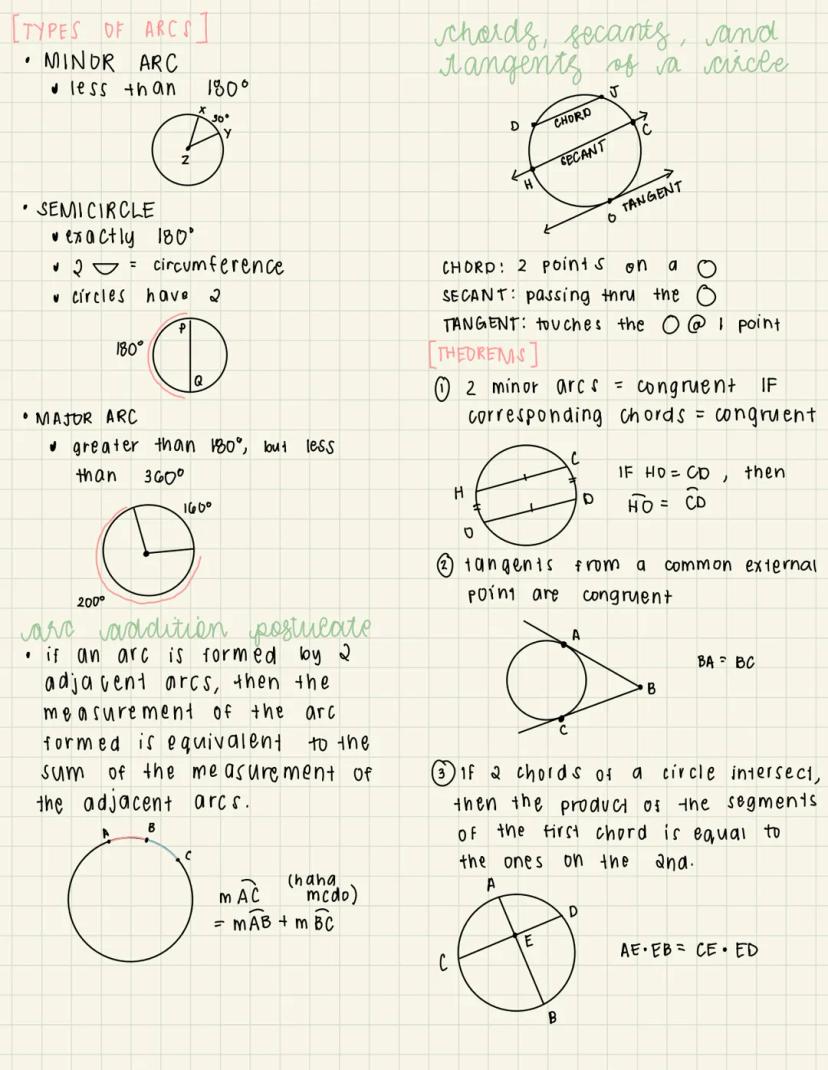 [TYPES OF ARCS]
• MINOR ARC
less than 180°
X
30°
Y
Z
• SEMICIRCLE
exactly 180°
2 = circumference
circles have 2
180°
P
Q
• MAJOR ARC
greater than 180°, but less
than 360°
160°
200°
arc addition postulate
• if an arc is formed by 2
adjacent arcs, then the
measurement of the arc
formed is equivalent to the
sum of the measurement of
the adjacent arcs.
A
B
C
m AC (haha
mcdo)
= mAB + m BC
chords, secants, and
tangents of a circle
J
D
CHORD
C
SECANT
H
TANGENT
O
CHORD: 2 points on a ◯
SECANT: passing thru the ◯
TANGENT: touches the ◯ @ 1 point
[THEOREMS]
① 2 minor arcs = congruent IF
corresponding chords = congruent
C
H
D
O
IF HO = CD, then
HO = CD
② tangents from a common external
point are congruent
A
B
C
BA = BC
③ If 2 chords of a circle intersect,
then the product of the segments
of the first chord is equal to
the ones on the 2nd.
A
D
E
C
B
AE•EB = CE•ED